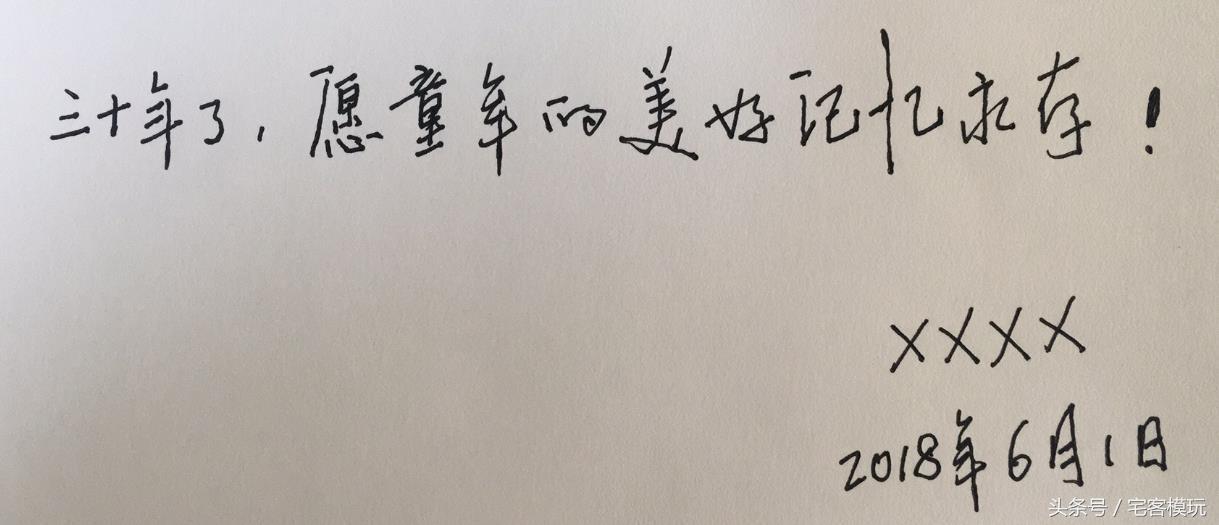 三十年了，愿童年的美好记忆永存！
XXXX
2018年6月1日
头条号 / 宅客模玩